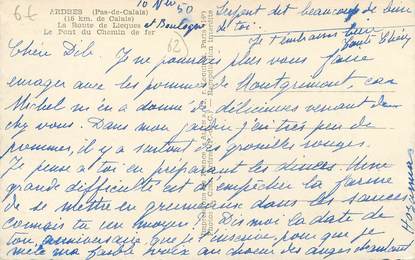 6f
10 Nov 50
ARDRES (Pas-de-Calais)
(15 km. de Calais)
La Route de Licques
et Boulogne
Le Pont du Chemin de fer
62
Chère Dib. Je ne pourrais plus vous faire
enrager avec les pommes de Montgremont, car
Michel m'en a donné de délicieuses venant de
chez vous. Dans mon jardin j'ai très peu de
pommes, il y a surtout des groseilles rouges.
Je pense à toi en préparant les dîners. Une
grande difficulté est d'empêcher la farine
de se mettre en grumeaux dans les sauces
connais tu un moyen? Dis moi la date de
ton anniversaire, que je l'inscrive, pour que je
mêle ma faible voix au chœur des anges chantant
dit beaucoup de bien
de toi.
Je t'embrasse bien